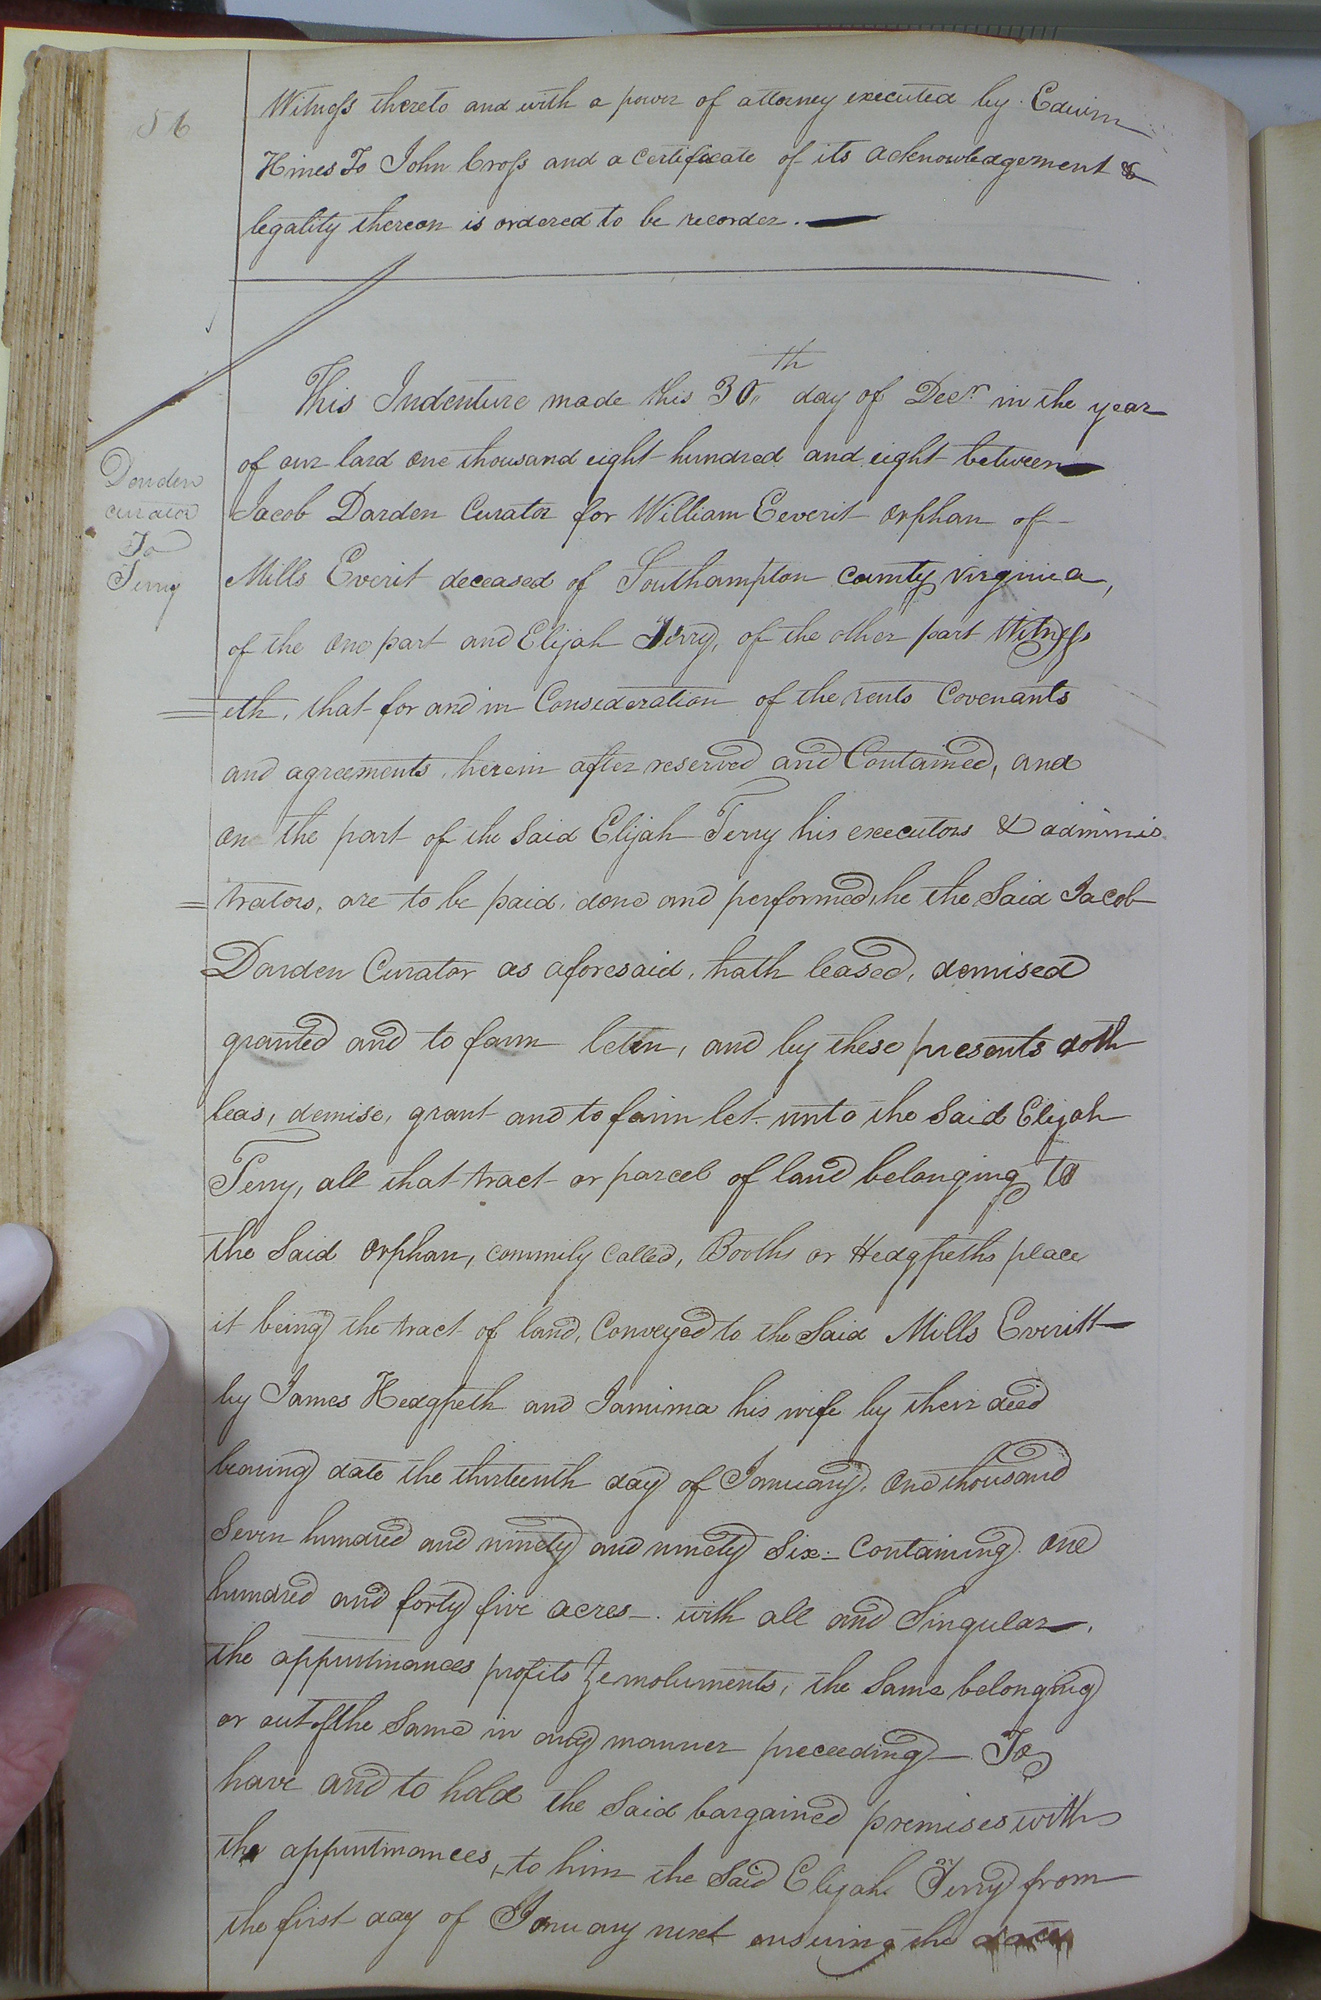 56
Witness thereto and with a power of attorney executed by Edwin
Hines To John Cross and a certificate of its acknowledgement &
legality thereon is ordered to be recorder.
This Indenture made this 30th day of Decr in the year
of our lord one thousand eight hundred and eight between
Darden
curator
To
Terry
Jacob Darden Curator for William Eeverit orphan of
Mills Everit deceased of Southampton county Virginia,
of the one part and Elijah Terry, of the other part Witness
=eth, that for and in Consideration of the rents Covenants
and agreements, herein after reserved and Contained, and
on the part of the Said Elijah Terry his executors & adminis
=trators, are to be paid, done and performed, he the Said Jacob
Darden Curator as aforesaid, hath leased, demised
granted and to farm letten, and by these presents doth
leas, demise, grant and to farm let unto the Said Elijah
Terry, all that tract or parcel of land belonging to
the Said orphan, commily called, Booths or Hedgpeths place
it being the tract of land, Conveyed to the Said Mills Everitt
by James Hedgpeth and Jamima his wife by their deed
bearing date the thirteenth day of January, one thousand
Seven hundred and ninety and ninety Six - Containing one
hundred and forty five acres - with all and Singular,
the appurtinances profits & emoluments, the Same belonging
or out of the Same in any manner preceeding - To
have and to hold the Said bargained premises with
the appurtinances, to him the Said Elijah Terry from
the first day of January next ensuing the date